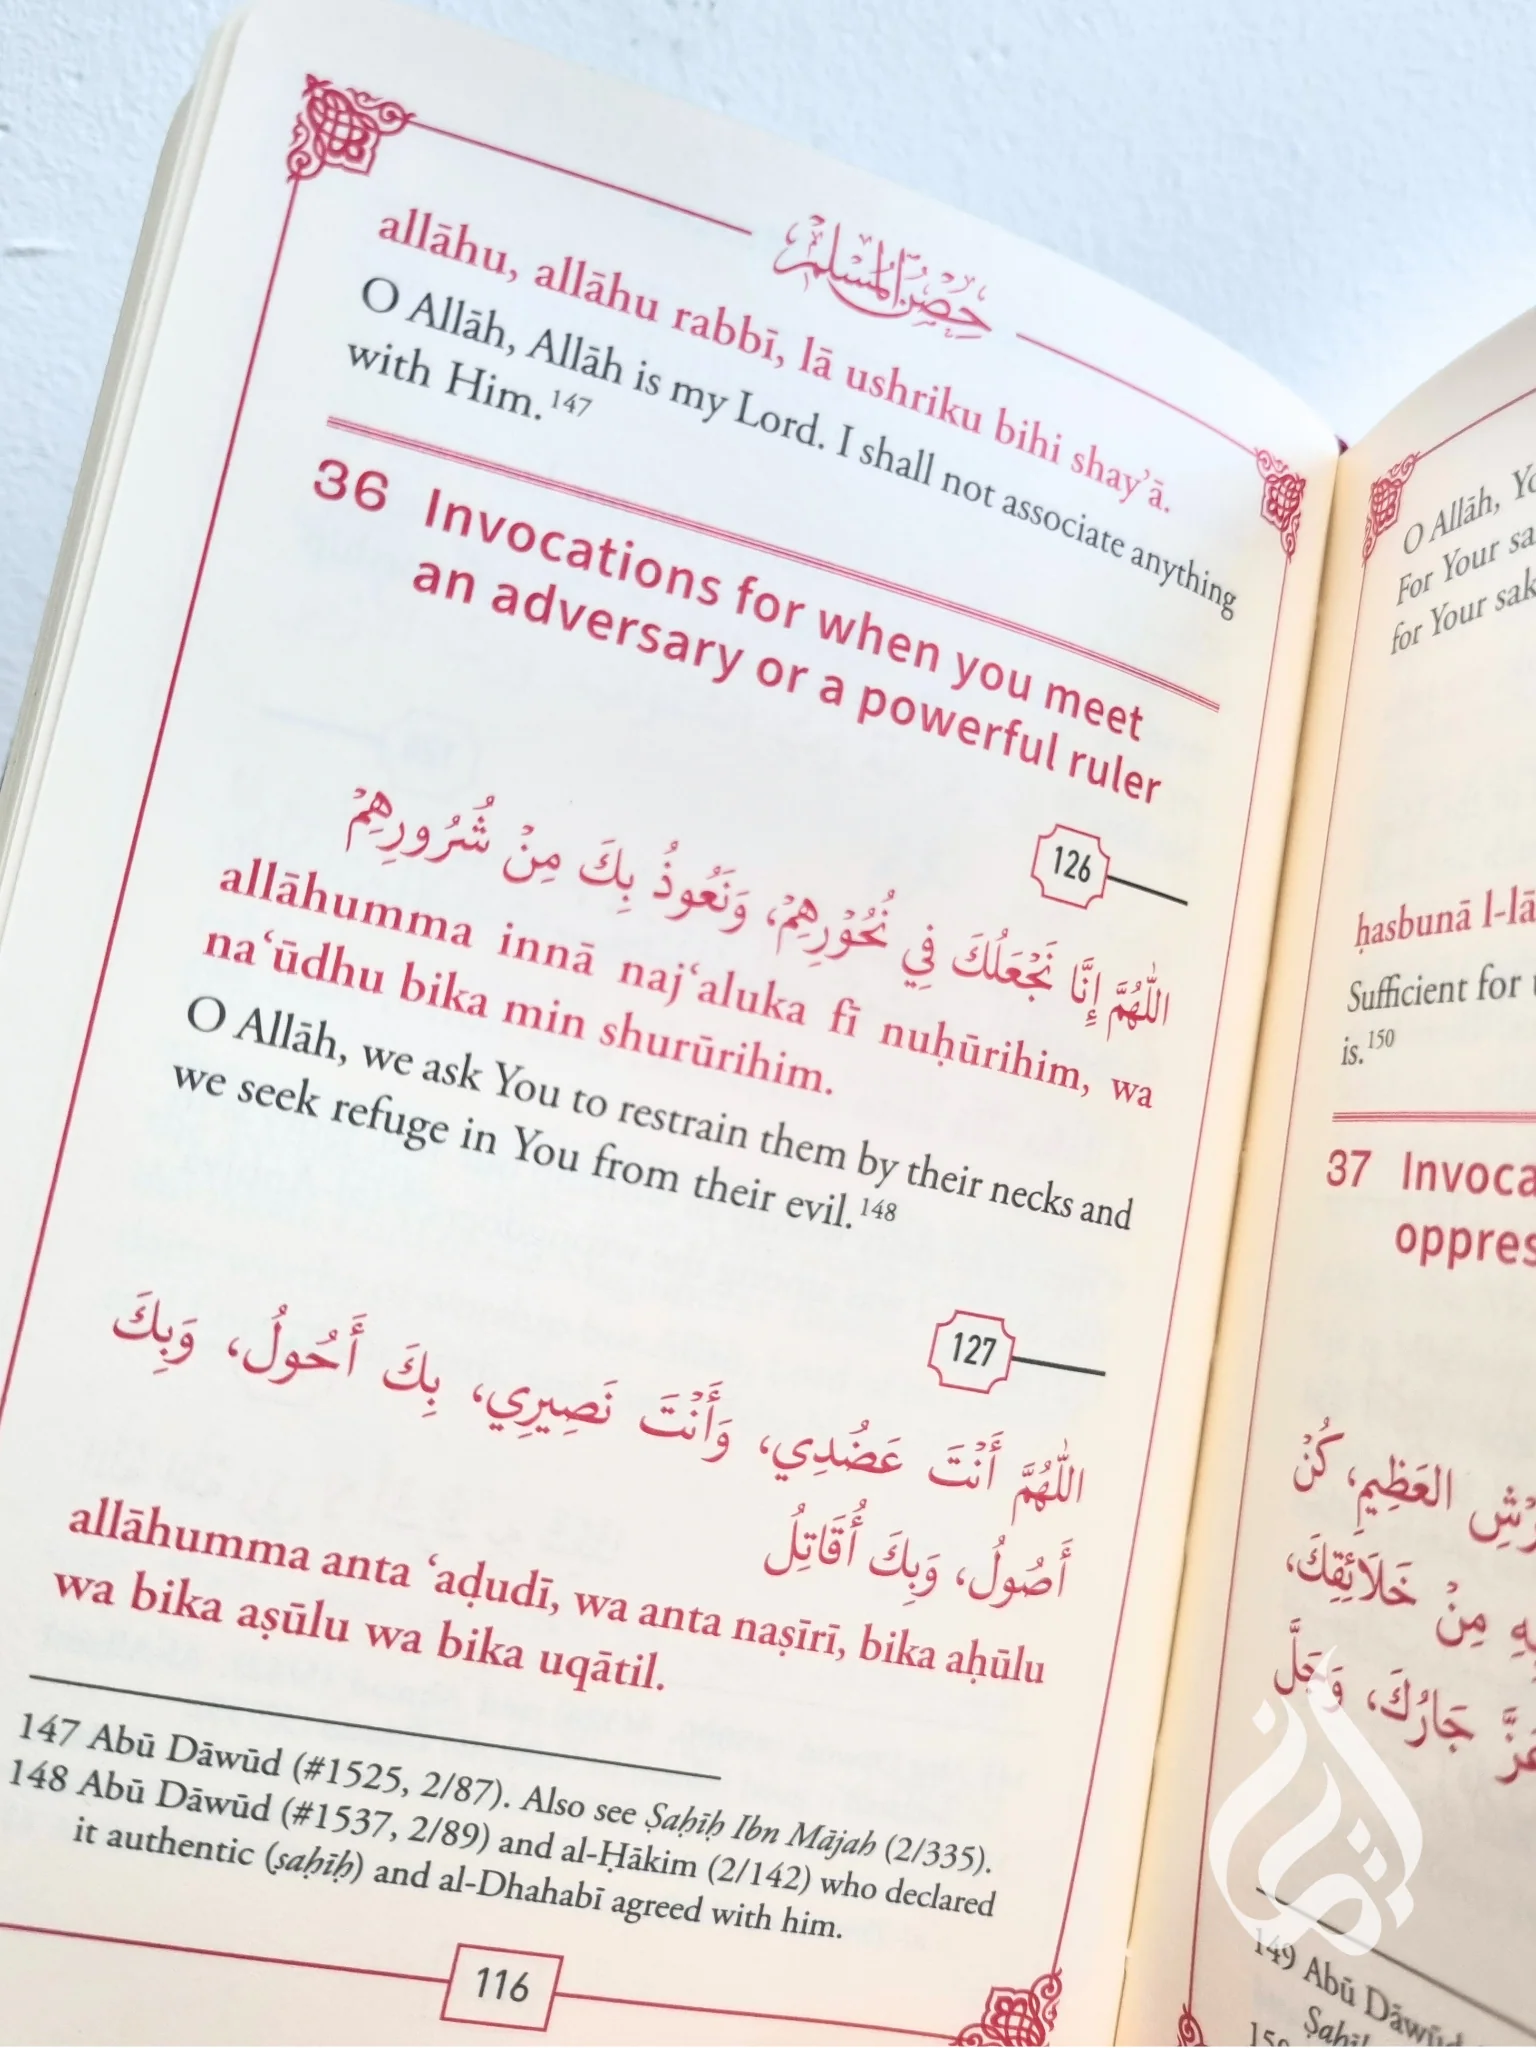 حِصْنُ المُسْلِمِ
allāhu, allāhu rabbī, lā ushriku bihi shay’ā.
O Allāh, Allāh is my Lord. I shall not associate anything
with Him.¹⁴⁷
36 Invocations for when you meet
an adversary or a powerful ruler
126
اللَّهُمَّ إِنَّا نَجْعَلُكَ فِي نُحُوْرِهِمْ، وَنَعُوذُ بِكَ مِنْ شُرُورِهِمْ
allāhumma innā naj‘aluka fī nuḥūrihim, wa
na‘ūdhu bika min shurūrihim.
O Allāh, we ask You to restrain them by their necks and
we seek refuge in You from their evil.¹⁴⁸
127
اللَّهُمَّ أَنْتَ عَضُدِي، وَأَنْتَ نَصِيرِي، بِكَ أَحُولُ، وَبِكَ
أَصُولُ، وَبِكَ أُقَاتِلُ
allāhumma anta ‘aḍudī, wa anta naṣīrī, bika aḥūlu
wa bika aṣūlu wa bika uqātil.
147 Abū Dāwūd (#1525, 2/87). Also see Ṣaḥīḥ Ibn Mājah (2/335).
148 Abū Dāwūd (#1537, 2/89) and al-Ḥākim (2/142) who declared
it authentic (ṣaḥīḥ) and al-Dhahabī agreed with him.
116
O Allāh,
For Your
for Your
ḥasbunā
Sufficient for
is.¹⁵⁰
37
العَظِيمِ، كُنْ
مِنْ خَلَائِقِكَ،
جَارُكَ، وَجَلَّ
149 Abū Dāwūd